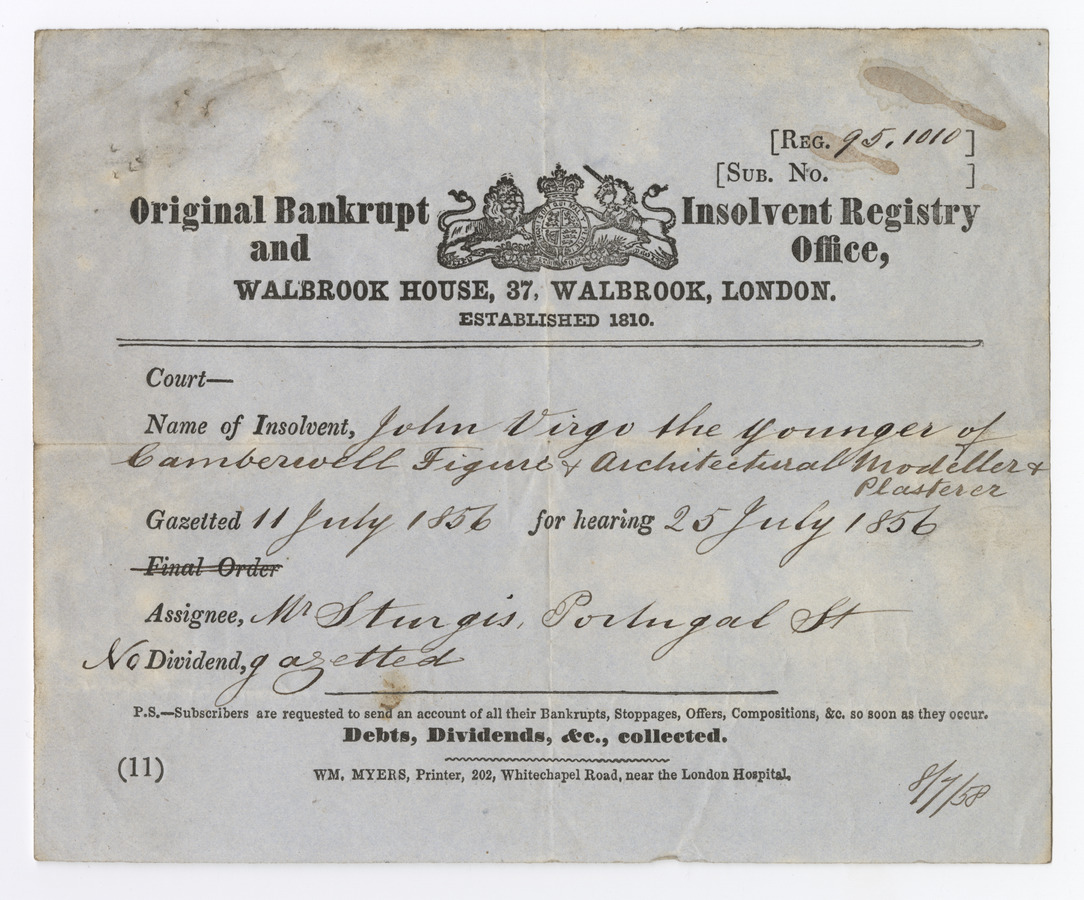 [REG. 95.1010]
[SUB. No. ]
Original Bankrupt and Insolvent Registry Office,
WALBROOK HOUSE, 37, WALBROOK, LONDON.
ESTABLISHED 1810.
Court—
Name of Insolvent, John Virgo the younger of
Camberwell Figure & Architectural Modeller &
Plasterer
Gazetted 11 July 1856 for hearing 25 July 1856
Final Order
Assignee, Mr Sturgis, Portugal St
No Dividend, gazetted
P.S.—Subscribers are requested to send an account of all their Bankrupts, Stoppages, Offers, Compositions, &c. so soon as they occur.
Debts, Dividends, &c., collected.
(11)
WM. MYERS, Printer, 202, Whitechapel Road, near the London Hospital.
8/7/58